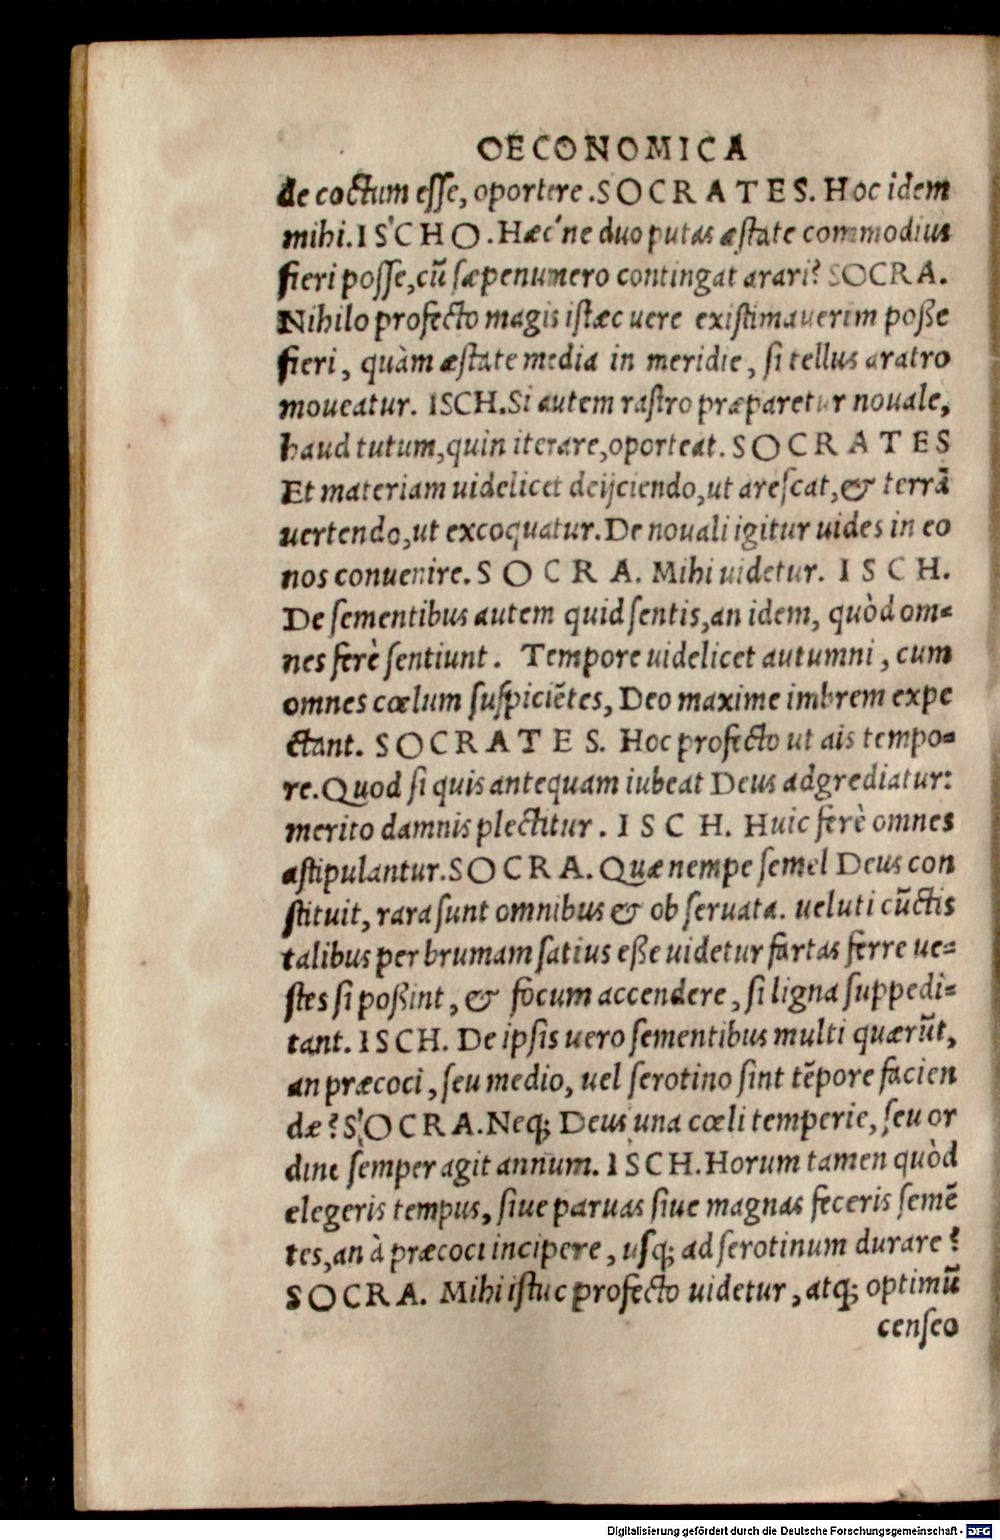 OECONOMICA
de coctum esse, oportere. SOCRATES. Hoc idem
mihi. ISCHO. Hæc'ne duo putas æstate commodius
fieri posse, cū sæpenumero contingat arari? SOCRA.
Nihilo profecto magis istæc uere existimauerim poße
fieri, quàm æstate media in meridie, si tellus aratro
moueatur. ISCH. Si autem rastro præparetur nouale,
haud tutum, quin iterare, oporteat. SOCRATES
Et materiam uidelicet deijciendo, ut arescat, & terrā
uertendo, ut excoquatur. De nouali igitur uides in eo
nos conuenire. SOCRA. Mihi uidetur. ISCH.
De sementibus autem quid sentis, an idem, quòd om=
nes ferè sentiunt. Tempore uidelicet autumni, cum
omnes cœlum suspiciētes, Deo maxime imbrem expe
ctant. SOCRATES. Hoc profecto ut ais tempo=
re. Quod si quis antequam iubeat Deus adgrediatur:
merito damnis plectitur. ISCH. Huic ferè omnes
astipulantur. SOCRA. Quæ nempe semel Deus con
stituit, rara sunt omnibus & obseruata. ueluti cūctis
talibus per brumam satius eße uidetur fartas ferre ue=
stes si poßint, & focum accendere, si ligna suppedi=
tant. ISCH. De ipsis uero sementibus multi quærūt,
an præcoci, seu medio, uel serotino sint tēpore facien
dæ? SOCRA. Neq; Deus una cœli temperie, seu or
dine semper agit annum. ISCH. Horum tamen quòd
elegeris tempus, siue paruas siue magnas feceris semē
tes, an à præcoci incipere, usq; ad serotinum durare?
SOCRA. Mihi istuc profecto uidetur, atq; optimū
censeo
Digitalisierung gefördert durch die Deutsche Forschungsgemeinschaft - DFG